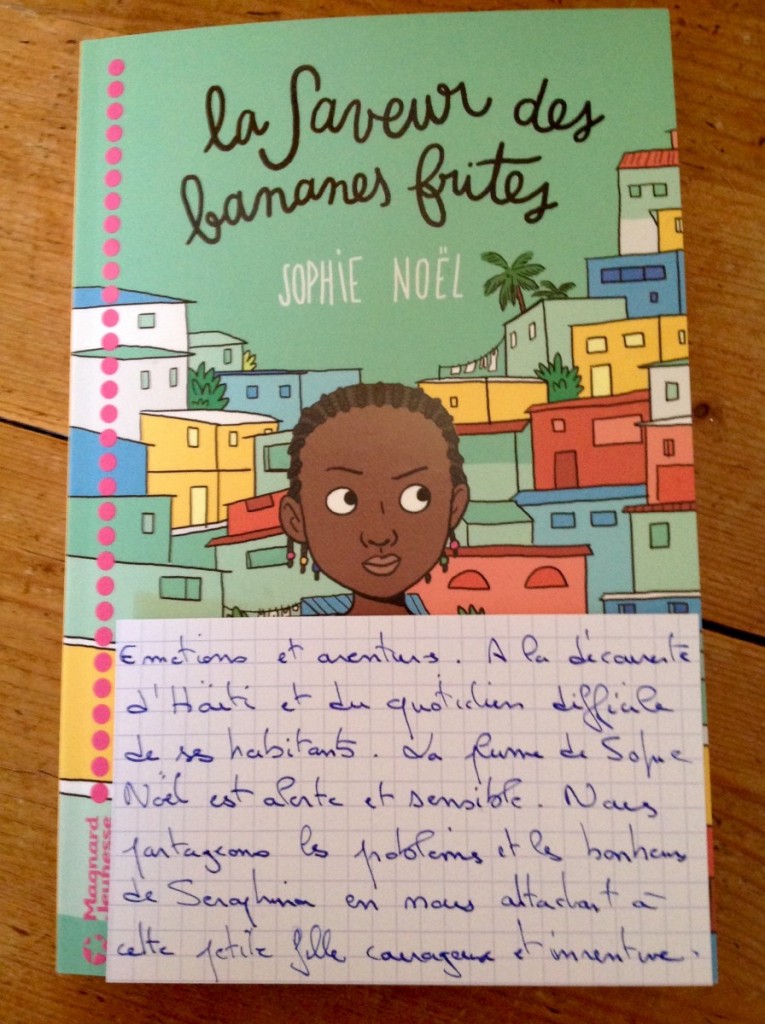 la Saveur des
bananes frites
SOPHIE NOËL
Emotions et aventures. A la découverte
d'Haïti et du quotidien difficile
de ses habitants. La plume de Sophie
Noël est alerte et sensible. Nous
partageons les problèmes et les bonheurs
de Seraphina en nous attachant à
cette petite fille courageuse et inventive.
Magnard
Jeunesse